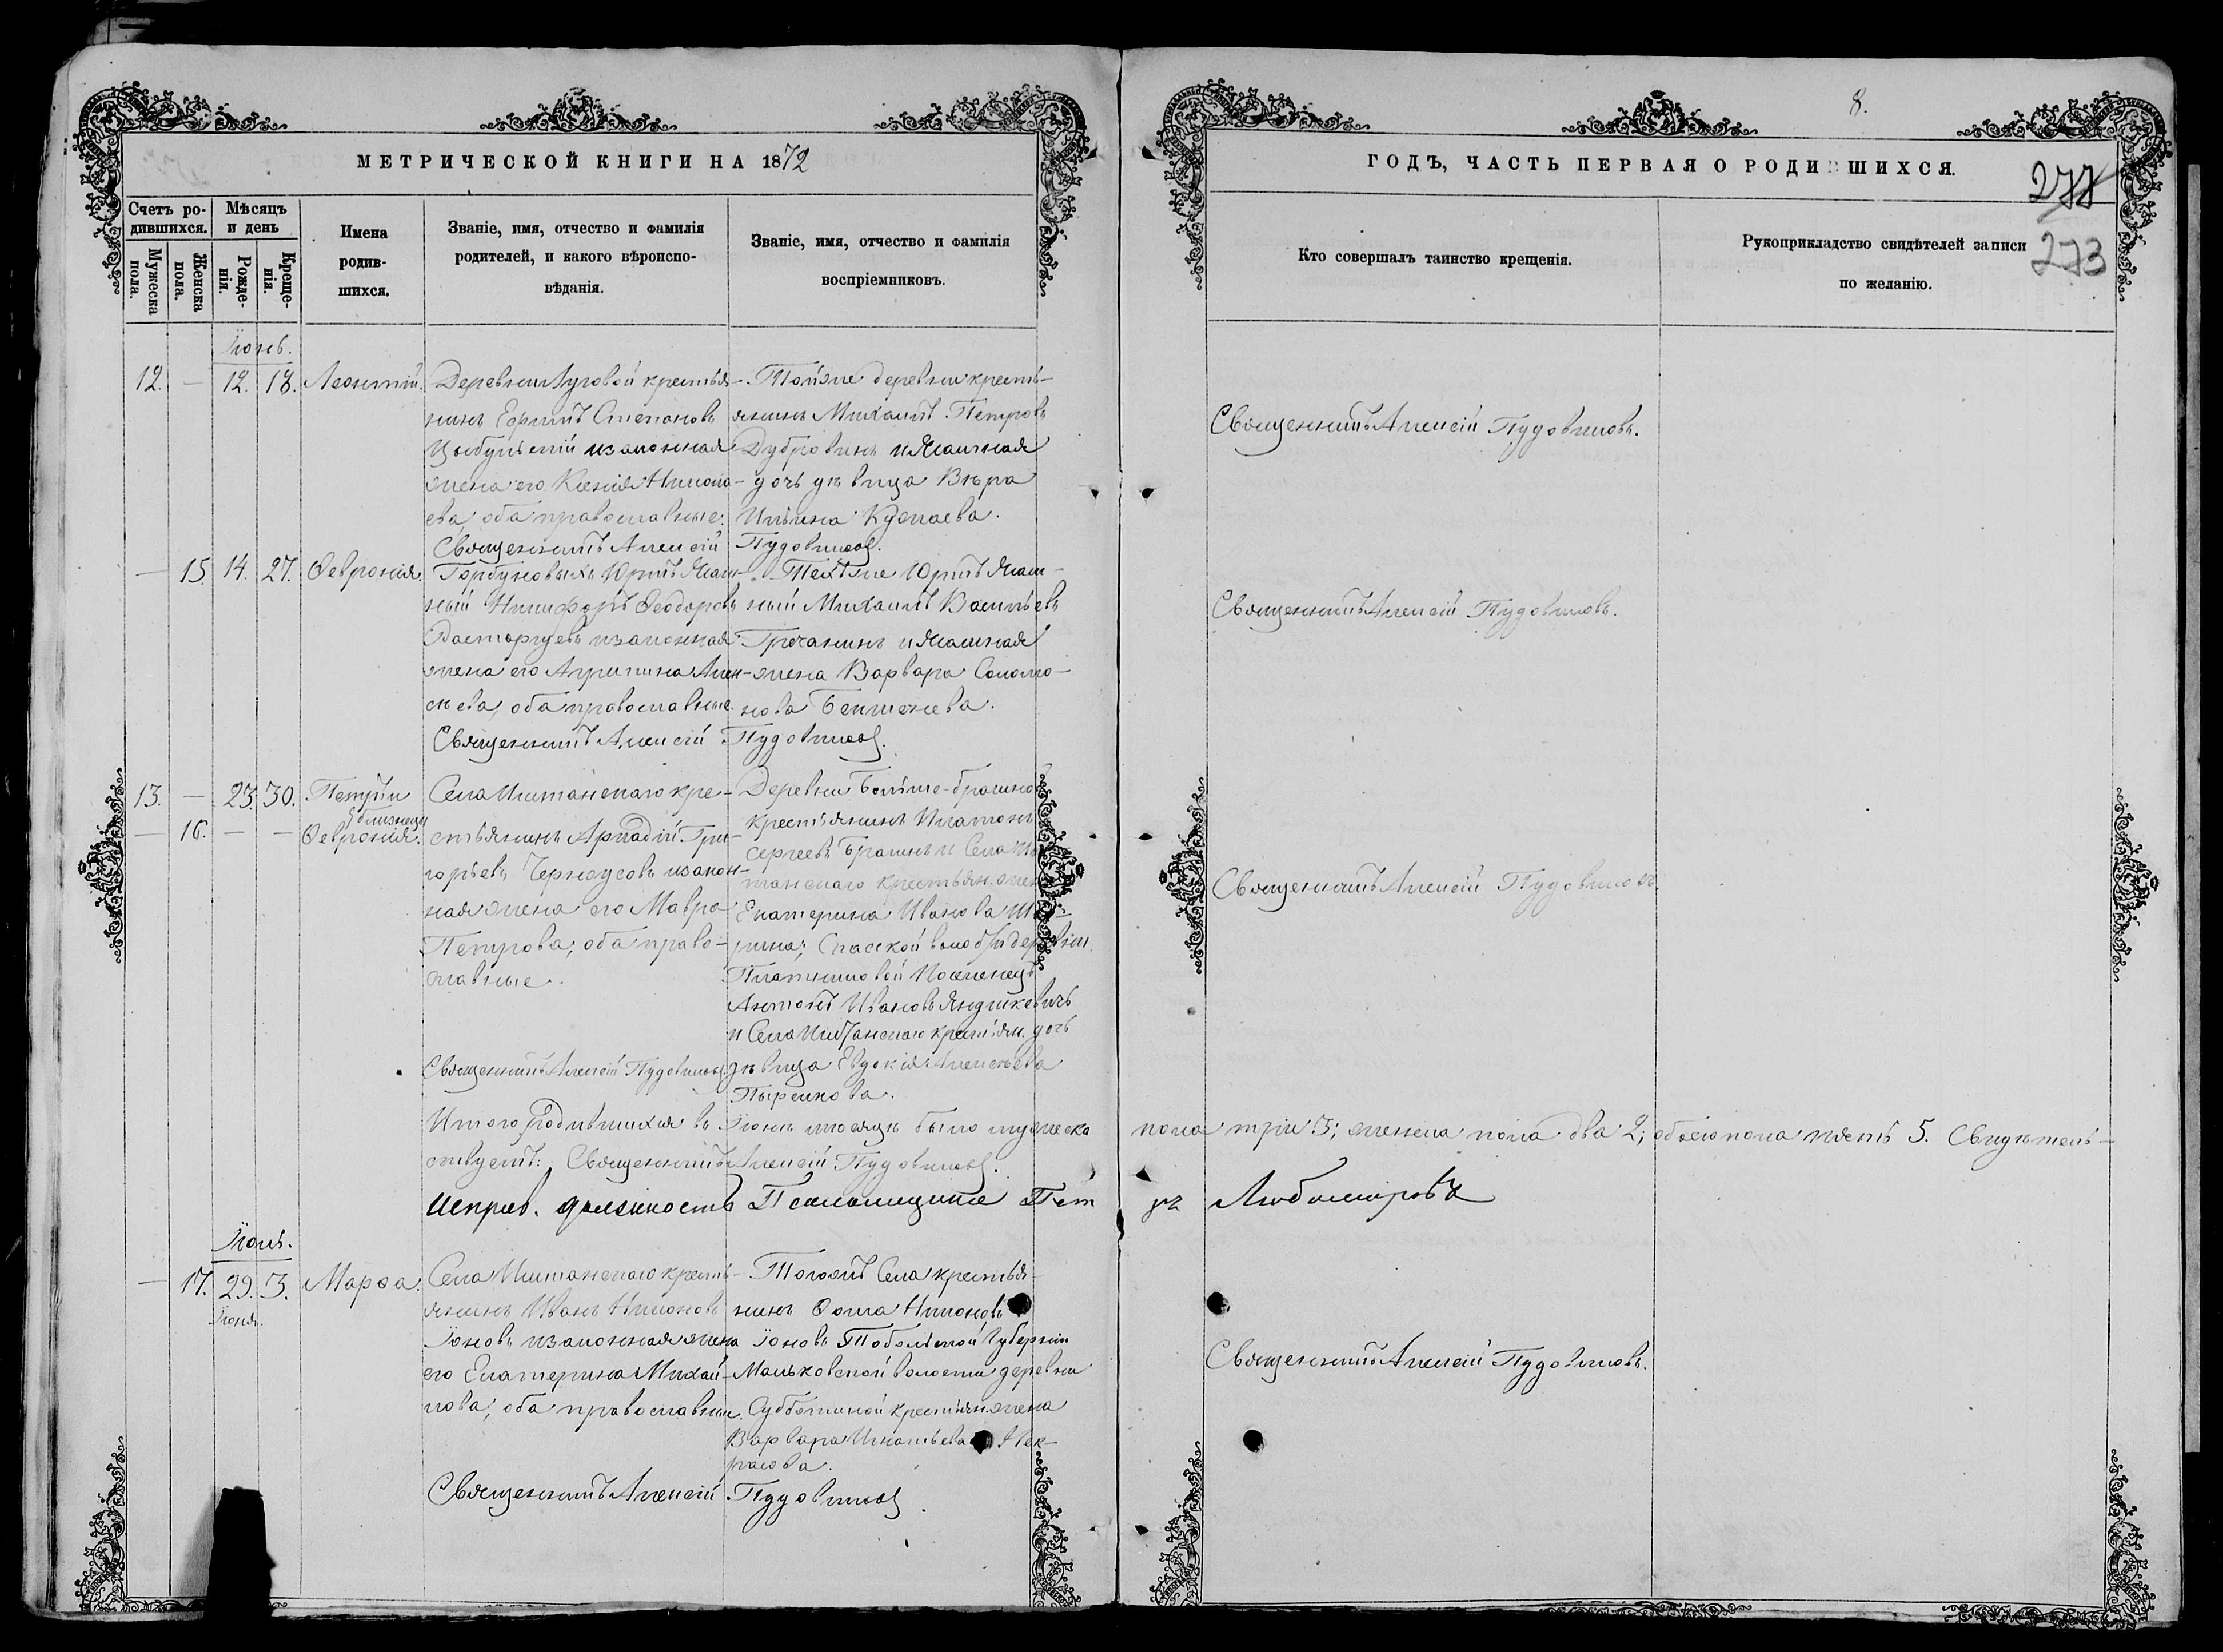 8.
МЕТРИЧЕСКОЙ КНИГИ НА 1872
ГОДЪ, ЧАСТЬ ПЕРВАЯ О РОДИВШИХСЯ.
277
273
Счетъ ро-
дившихся.
Мужеска
пола.
Женска
пола.
Мѣсяцъ
и день
Рожде-
нія.
Креще-
нія.
Имена
родив-
шихся.
Званіе, имя, отчество и фамилія
родителей, и какого вѣроиспо-
вѣданія.
Званіе, имя, отчество и фамилія
воспріемниковъ.
Кто совершалъ таинство крещенія.
Рукоприкладство свидѣтелей записи
по желанію.
Іюнь.
12. — 12. 18. Леонтій.
Деревни Луговой крестья-
нинъ Ефимъ Степановъ
Цыбульскій и законная
жена его Ксенія Никола-
ева, оба православные.
Тойже деревни кресть-
янинъ Михаилъ Петровъ
Дубровинъ и Ясашная
дочь дѣвица Вѣра
Ильина Кужаева.
Священникъ Алексій Пудовиковъ.
Священникъ Алексій Пудовиковъ.
— 15. 14. 27. Ѳевронія.
Горбуновыхъ Юртъ Ясаш-
ный Никифоръ Ѳеодоровъ
Расторгуевъ и законная
жена его Агрипина Алек-
сѣева, оба православные.
Тѣхъже Юртъ Ясаш-
ный Михаилъ Васильевъ
Гречанинъ и Ясашная
жена Варвара Соломо-
нова Бекшенева.
Священникъ Алексій Пудовиковъ.
Священникъ Алексій Пудовиковъ.
13. — 23. 30. Петръ и
близнецы
— 16. — — Ѳевронія.
Села Иштанскаго кре-
стьянинъ Аркадій Гри-
горьевъ Черноусовъ и закон-
ная жена его Мавра
Петрова; оба право-
славные.
Деревни Больше-брагино
крестьянинъ Платонъ
Сергеевъ Брагинъ и Села Иш-
танскаго крестьян. жен
Екатерина Иванова
рина; Спасской волости деревни
Поселенецъ
Антонъ Ивановъ Яндушкевичъ
и Села Иштанскаго крестьян. дочь
дѣвица Евдокія Алексѣева
Пыренкова.
Священникъ Алексій Пудовиковъ.
Священникъ Алексій Пудовиковъ.
Итого родившихся въ Іюнѣ мѣсяцѣ было мужеска пола три 3; женска пола два 2; обоего пола пять 5. Свидѣтель-
ствуетъ: Священникъ Алексій Пудовиковъ.
Исправ. должность Псаломщика Петръ Любомировъ
Іюль.
— 17. 29. 3. Марѳа.
Іюня.
Села Иштанскаго кресть-
янинъ Иванъ Никоновъ
Іоновъ и законная жена
его Екатерина Михай-
лова; оба православные.
Тогожъ Села крестья-
нинъ Ѳома Никоновъ
Іоновъ Тобольской Губерніи
Мальковской волости деревни
Субботиной крестьян. жена
Варвара Игнатьева Нек-
расова.
Священникъ Алексій Пудовиковъ.
Священникъ Алексій Пудовиковъ